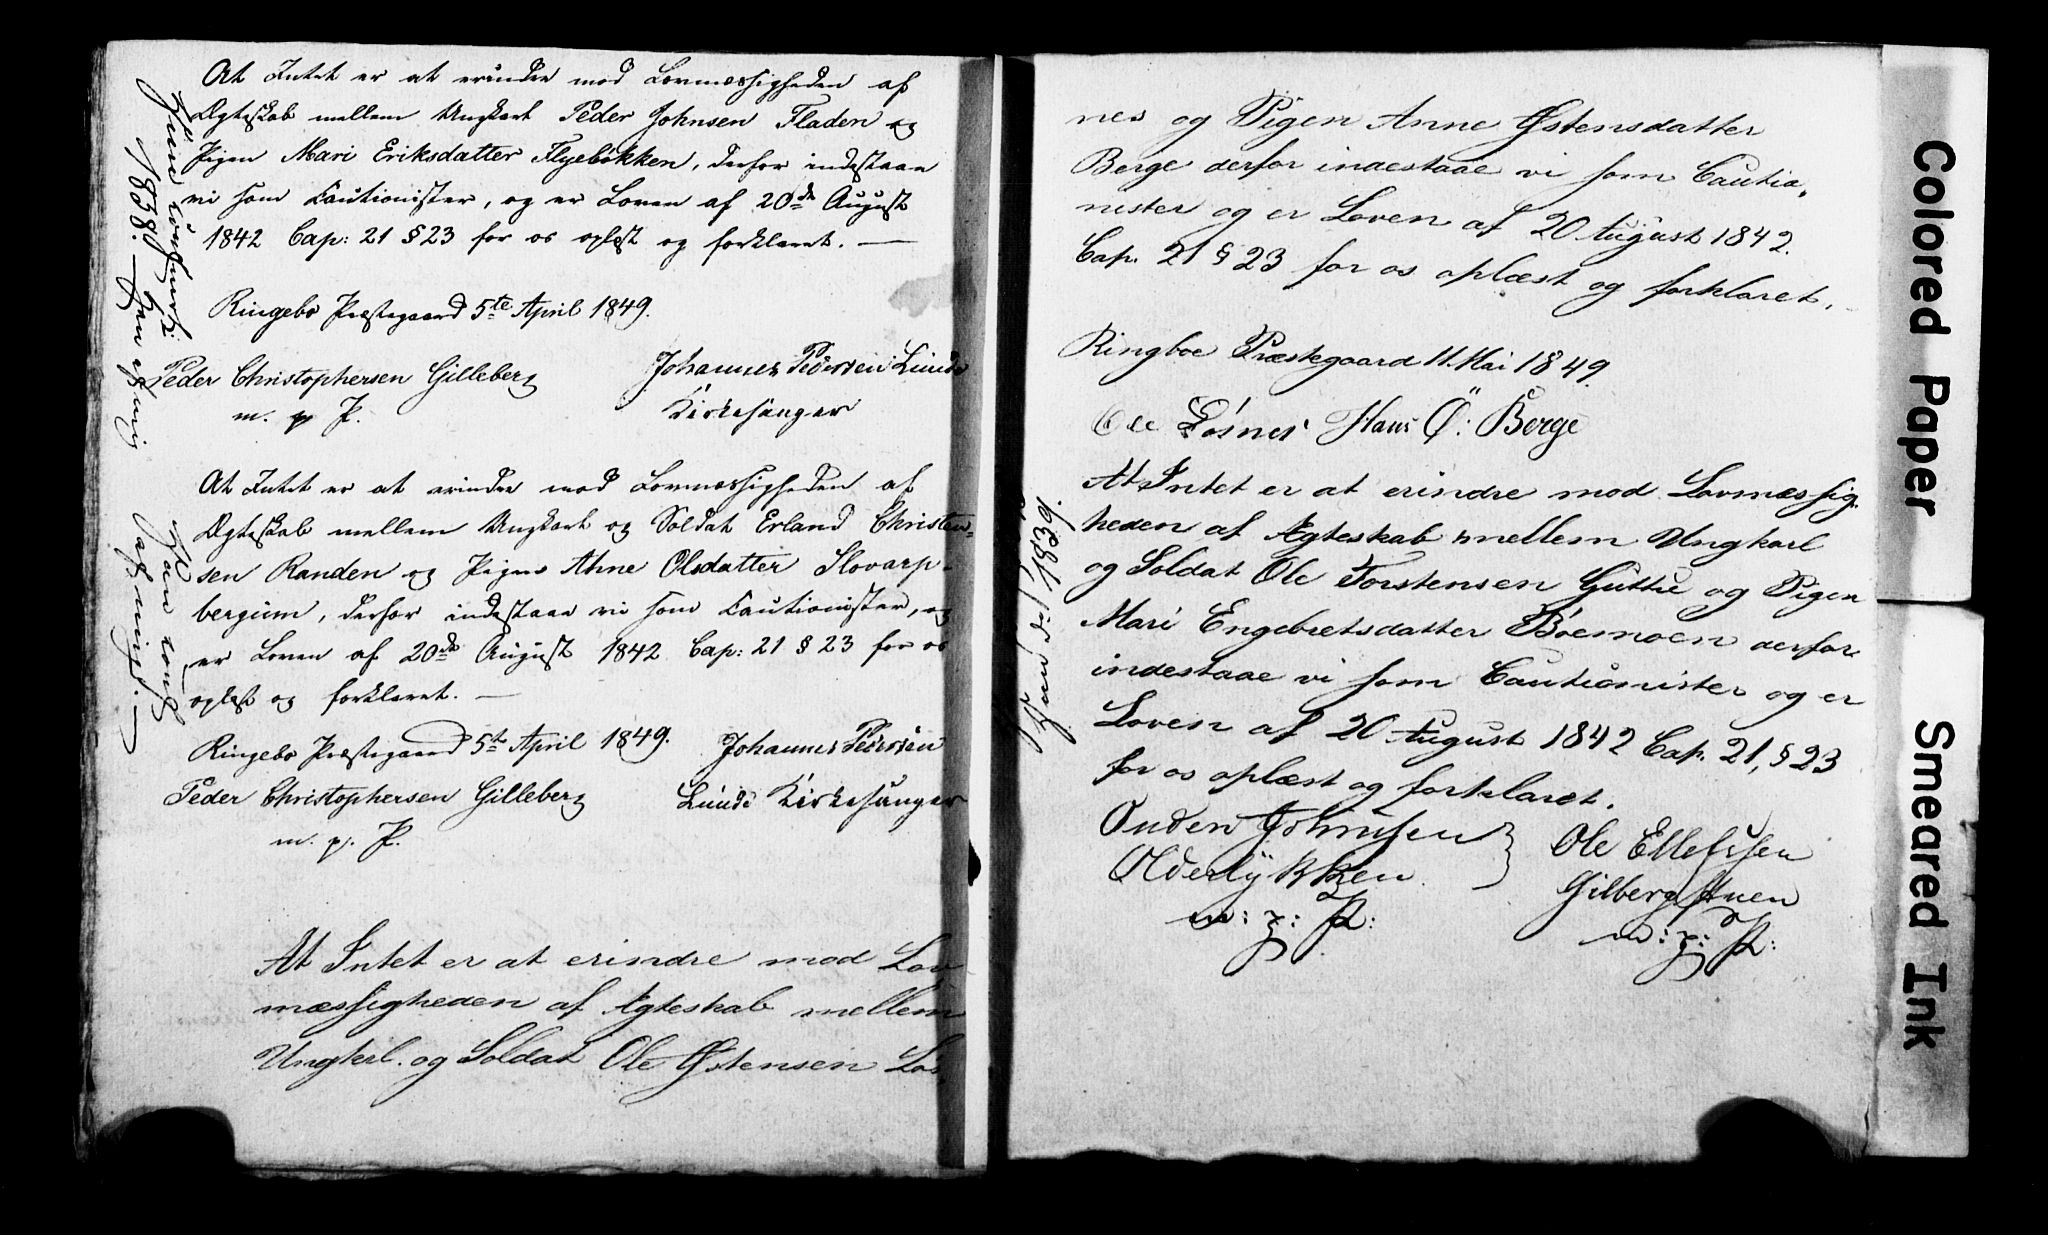 At Intet er at erindre mod Lovmæssigheden af
Ægteskab mellem Ungkarl Peder Johnsen Fladen og
Pigen Mari Eriksdatter Flyebækken, derfor indestaae
vi som Cautionister, og er Loven af 20de August
1842 Cap: 21 § 23 for os oplæst og forklaret. —
Ringebo Præstegaard 5te April 1849.
Peder Christophersen Gilleberg
m. p. P.
Johannes Pedersen Lunde
Kirkesanger
1838.
At Intet er at erindre mod Lovmæssigheden af
Ægteskab mellem Ungkarl og Soldat Erland Christen-
sen Randen og Pigen Anne Olsdatter Slovarp-
bergum, derfor indestaae vi som Cautionister, og
er Loven af 20de August 1842 Cap: 21 § 23 for os
oplæst og forklaret. —
Ringebo Præstegaard 5te April 1849.
Johannes Pedersen
Peder Christophersen Gilleberg
Lunde Kirkesanger
m. p. P.
At Intet er at erindre mod Lov
mæssigheden af Ægteskab mellem
Ungkrl. og Soldat Ole Østensen Løs-
nes og Pigen Anne Østensdatter
Berge derfor indestaae vi som Cautio-
nister og er Loven af 20 August 1842.
Cap. 21 § 23 for os oplæst og forklaret.
Ringboe Præstegaard 11. Mai 1849.
Ole Løsnes Hans Ö: Berge
1839.
At Intet er at erindre mod Lovmæssig-
heden af Ægteskab mellem Ungkarl
og Soldat Ole Torstensen Guttu og Pigen
Mari Engebretsdatter Bøemoen derfor
indestaae vi som Cautionister og er
Loven af 20 August 1842 Cap. 21, § 23
for os oplæst og forklaret.
Ouden Johnssen
Olderlykken
m: p: P:
Ole Ellefssen
Gilbergstuen
m: p: P:
Colored Paper
Smeared Ink